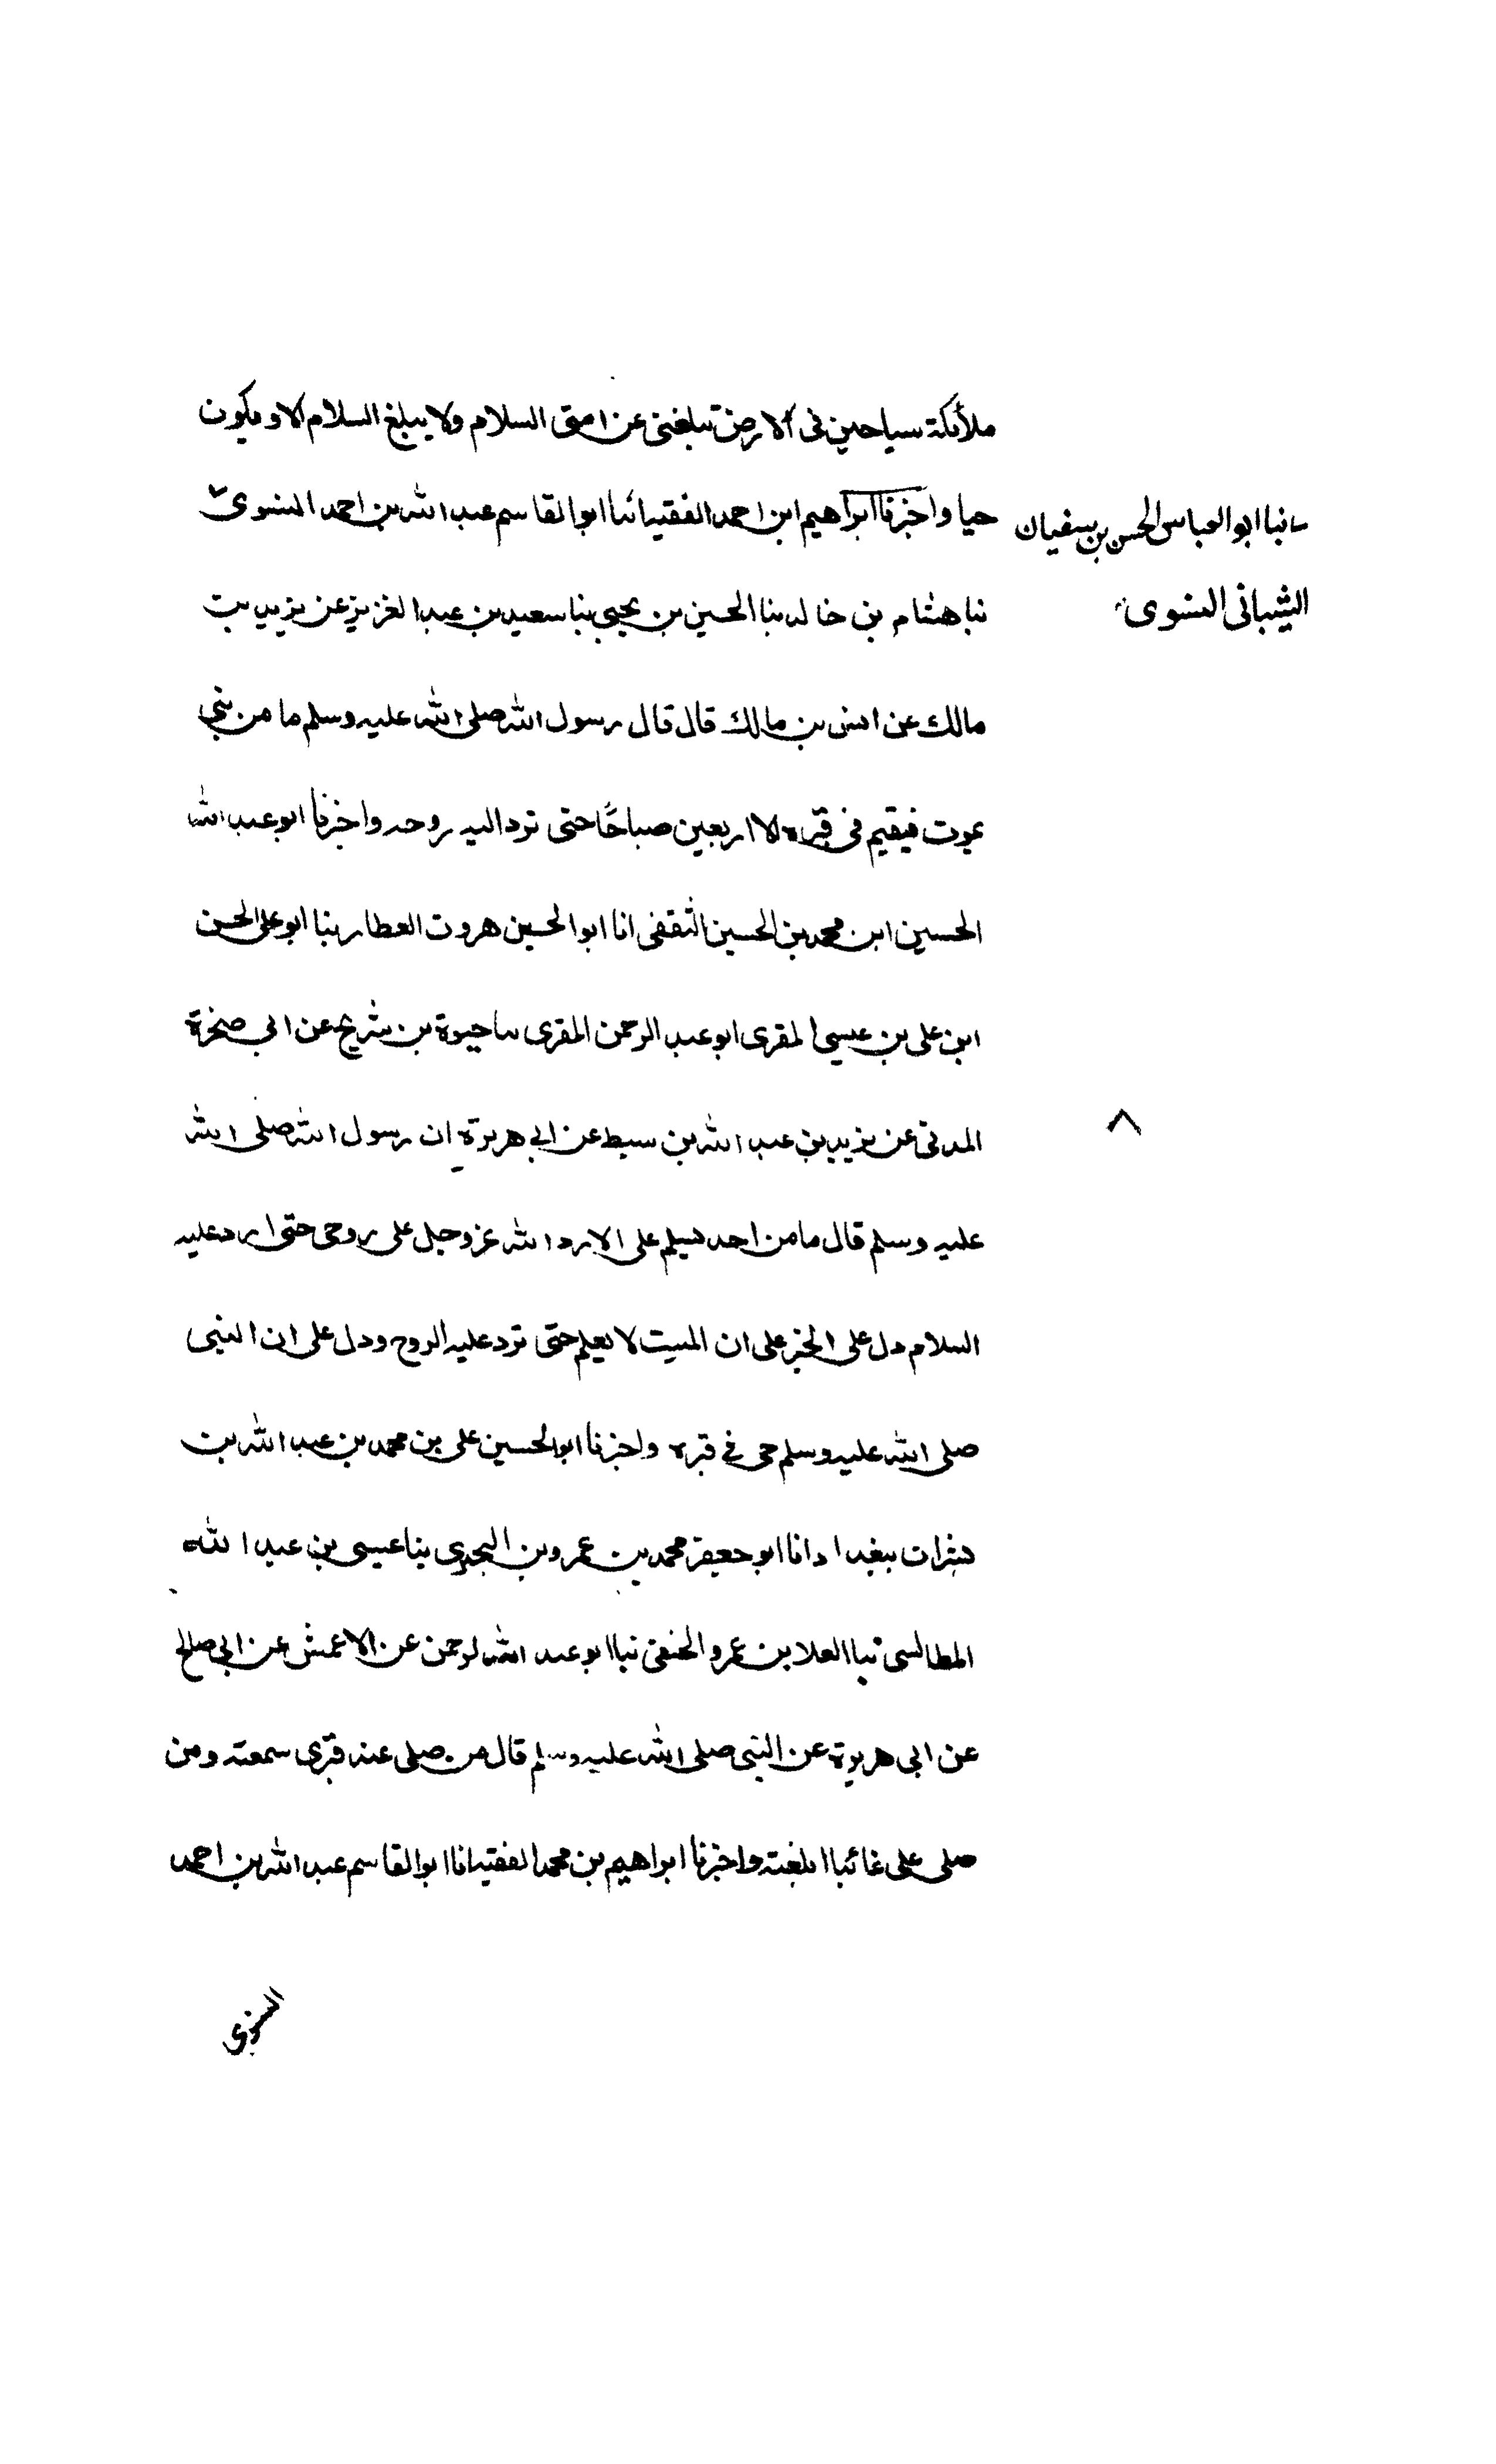 ملأئكة سياحين فى الارض تبلغنى عن امتى السلام ولا يبلغ السلام الا ويكون
حيا واخبرنا ابراهيم ابن احمد الفقيه انبا ابو القاسم عبد الله بن احمد النسوى
نبا ابو العباس الحسن بن سفيان
الشيبانى النسوى
نبا هشام بن خالد نبا الحسين بن يحيى نبا سعيد بن عبد العزيز عن يزيد بن
مالك عن انس بن مالك قال قال رسول الله صلى الله عليه وسلم ما من نبي
يموت فيقيم فى قبره الا اربعين صباحًا حتى ترد اليه روحه واخبرنا ابو عبد الله
الحسين ابن محمد بن الحسين الثقفى انا ابو الحسين هروت العطار نبا ابو على الحسن
ابن على بن عيسى المقرى ابو عبد الرحمن المقرى نبا حيوة بن شريح عن ابي صخرة
المدنى عن يزيد بن عبد الله بن سيط عن ابي هريرة ان رسول الله صلى الله
عليه وسلم قال ما من احد يسلم على الا رد الله عز وجل على روحى حتى ارد عليه
السلام دل على الخبر على ان الميت لا يعلم حتى ترد عليه الروح ودل على ان النبى
صلى الله عليه وسلم حى في قبره واخبرنا ابو الحسين على بن محمد بن عبد الله بن
بشران ببغداد انا ابو جعفر محمد بن عمرو بن البحيرى نبا عيسى بن عبد الله
الطالسى نبا العلا بن عمرو الحنفى نبا ابو عبد الرحمن عن الاعمش عن ابى صالح
عن ابى هريرة عن النبى صلى الله عليه وسلم قال من صلى عند قبرى سمعته ومن
صلى على غائبا ابلغته واخبرنا ابراهيم بن محمد الفقيه انا ابو القاسم عبد الله بن احمد
النسوى